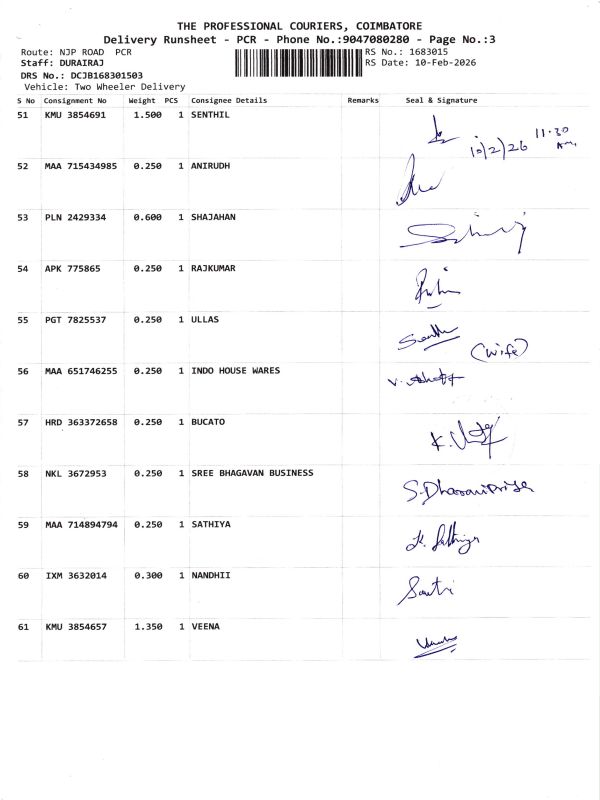 THE PROFESSIONAL COURIERS, COIMBATORE
Delivery Runsheet - PCR - Phone No.:9047080280 - Page No.:3
Route: NJP ROAD PCR
RS No.: 1683015
Staff: DURAIRAJ
RS Date: 10-Feb-2026
DRS No.: DCJB168301503
Vehicle: Two Wheeler Delivery
S No Consignment No Weight PCS Consignee Details Remarks Seal & Signature
51 KMU 3854691 1.500 1 SENTHIL
10/2/26 11.30 Am
52 MAA 715434985 0.250 1 ANIRUDH
53 PLN 2429334 0.600 1 SHAJAHAN
54 APK 775865 0.250 1 RAJKUMAR
55 PGT 7825537 0.250 1 ULLAS
(wife)
56 MAA 651746255 0.250 1 INDO HOUSE WARES
57 HRD 363372658 0.250 1 BUCATO
58 NKL 3672953 0.250 1 SREE BHAGAVAN BUSINESS
S.Dharanipriya
59 MAA 714894794 0.250 1 SATHIYA
60 IXM 3632014 0.300 1 NANDHII
61 KMU 3854657 1.350 1 VEENA